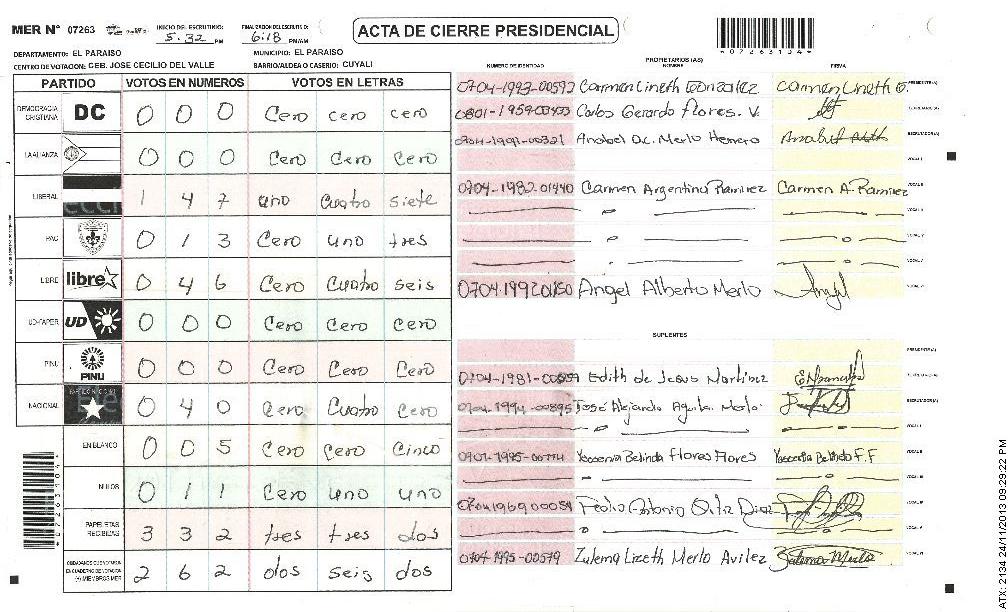 MER N° 07263 INICIO DEL ESCRUTINIO: 5:32 PM FINALIZACION DEL ESCRUTINIO: 6:18 PM/AM ACTA DE CIERRE PRESIDENCIAL
07263104
DEPARTAMENTO: EL PARAISO MUNICIPIO: EL PARAISO
CENTRO DE VOTACION: CEB. JOSE CECILIO DEL VALLE BARRIO/ALDEA O CASERIO: CUYALI
PROPIETARIOS (AS)
NUMERO DE IDENTIDAD NOMBRE FIRMA
PARTIDO VOTOS EN NUMEROS VOTOS EN LETRAS
DEMOCRACIA CRISTIANA DC 0 0 0 Cero cero cero
LA ALIANZA 0 0 0 Cero Cero Cero
LIBERAL 1 4 7 uno Cuatro siete
PAC 0 1 3 Cero uno tres
LIBRE libre 0 4 6 Cero Cuatro seis
UD-FAPER UD 0 0 0 Cero Cero Cero
PINU PINU 0 0 0 Cero Cero Cero
NACIONAL 0 4 0 Cero Cuatro Cero
EN BLANCO 0 0 5 Cero Cero Cinco
NULOS 0 1 1 Cero uno uno
PAPELETAS RECIBIDAS 3 3 2 tres tres dos
2 6 2 dos seis dos
0704-1993-00592 Carmen Lineth Gonzalez Carmen Lineth G.
Carlos Gerardo Flores. V.
0704-1991-00321 Anabel Merlo Herrera Anabel
0704-1982-01440 Carmen Argentina Ramirez Carmen A. Ramirez
Angel Alberto Merlo Angel
SUPLENTES
Edith de Jesus Martinez
0704-1994-00895 José Alejandro Merlo
Yessenia Belinda Flores Flores Yessenia Belinda F.F
Pedro Antonio Ortiz Diaz
0704-1995-00579 Zulema Lizeth Merlo Avilez Zulema Merlo
ATX: 2134 24/11/2013 09:29:22 PM